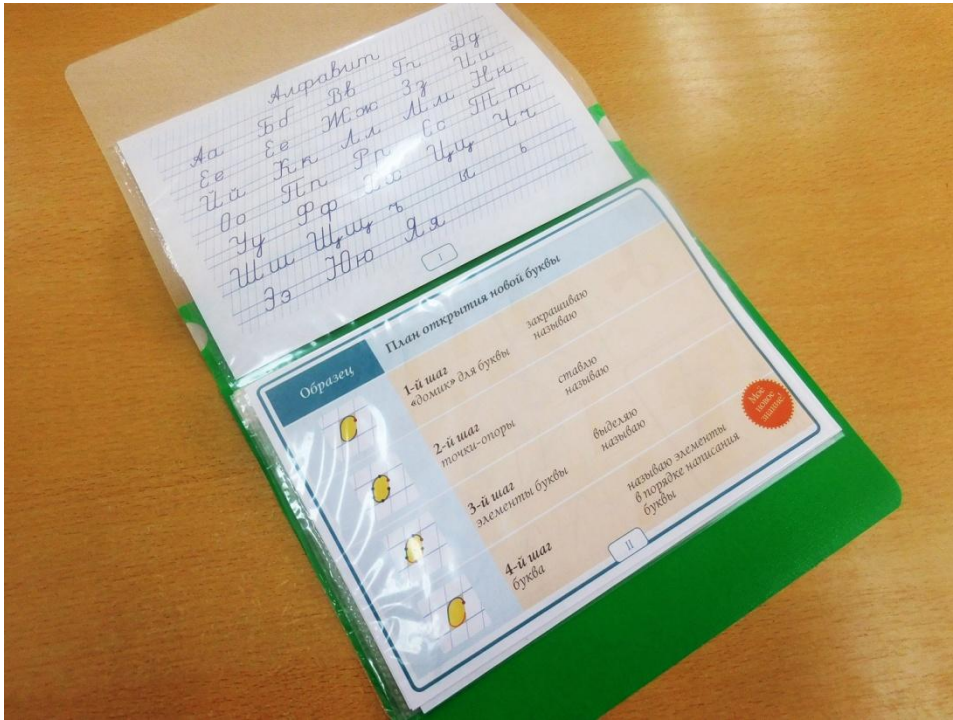 Алфавит
Аа Бб Вв Гг Дд
Ее Ее Жж Зз Ии
Йй Кк Лл Мм Нн
Оо Пп Рр Сс Тт
Уу Фф Хх Цц Чч
Шш Щщ ъ ы ь
Ээ Юю Яя
I
Образец
План открытия новой буквы
1-й шаг
«домик» для буквы
закрашиваю
называю
2-й шаг
точки-опоры
ставлю
называю
3-й шаг
элементы буквы
выделяю
называю
4-й шаг
буква
называю элементы
в порядке написания
буквы
Моё
новое
знание!
II